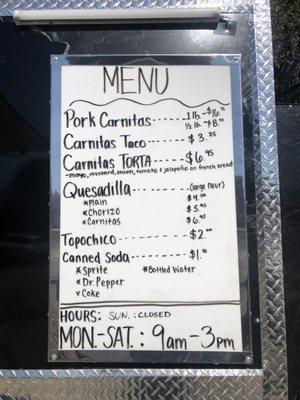 MENU
Pork Carnitas ---- 1 lb. - $16.75
1/2 lb. - $8.50
Carnitas Taco ------ $3.25
Carnitas TORTA ---- $6.95
~mayo, mustard, onion, tomato & jalapeño on french bread
Quesadilla ---------- (large flour)
*Plain $4.50
*Chorizo $5.95
*Carnitas $6.95
Topochico ---------- $2.00
Canned Soda --------- $1.50
*Sprite *Bottled Water
*Dr. Pepper
*Coke
HOURS: SUN.: CLOSED
MON.-SAT.: 9am-3pm